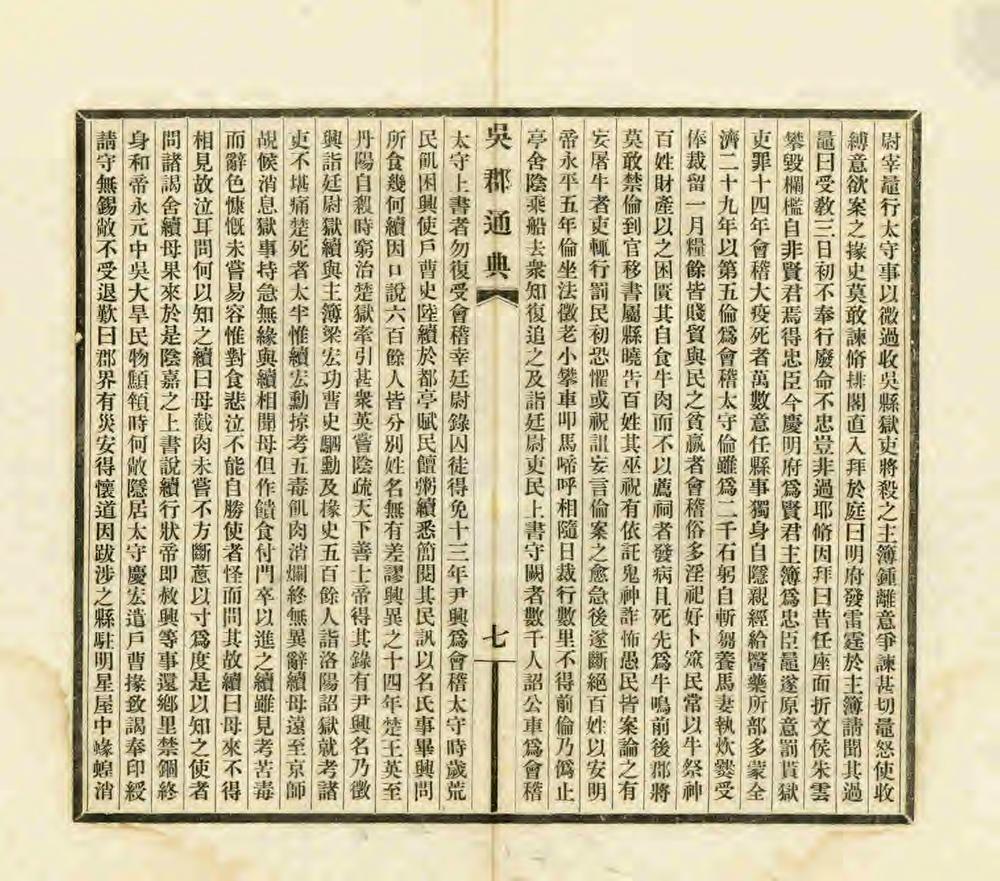 尉宰鼂行太守事以微過收吳縣獄吏將殺之主簿鍾離意爭諫甚切鼂怒使收
縛意欲案之掾史莫敢諫脩排閤直入拜於庭曰明府發雷霆於主簿請聞其過
鼂曰受敎三日初不奉行廢命不忠豈非過耶脩因拜曰昔任座面折文侯朱雲
攀毀欄檻自非賢君焉得忠臣今慶明府爲賢君主簿爲忠臣鼂遂原意罰貰獄
吏罪十四年會稽大疫死者萬數意任縣事獨身自隱親經給醫藥所部多蒙全
濟二十九年以第五倫爲會稽太守倫雖爲二千石躬自斬芻養馬妻執炊爨受
俸裁留一月糧餘皆賤貿與民之貧羸者會稽俗多淫祀好卜筮民常以牛祭神
百姓財產以之困匱其自食牛肉而不以薦祠者發病且死先爲牛鳴前後郡將
莫敢禁倫到官移書屬縣曉告百姓其巫祝有依託鬼神詐怖愚民皆案論之有
妄屠牛者吏輒行罰民初恐懼或祝詛妄言倫案之愈急後遂斷絕百姓以安明
帝永平五年倫坐法徵老小攀車叩馬啼呼相隨日裁行數里不得前倫乃僞止
亭舍陰乘船去衆知復追之及詣廷尉吏民上書守闕者數千人詔公車爲會稽
吳郡通典
七
太守上書者勿復受會稽幸廷尉錄囚徒得免十三年尹興爲會稽太守時歲荒
民飢困興使戶曹史陸續於都亭賦民饘粥續悉簡閱其民訊以名氏事畢興問
所食幾何續因口說六百餘人皆分別姓名無有差謬興異之十四年楚王英至
丹陽自殺時窮治楚獄牽引甚衆英嘗陰疏天下善士帝得其錄有尹興名乃徵
興詣廷尉獄續與主簿梁宏功曹史駟勳及掾史五百餘人詣洛陽詔獄就考諸
吏不堪痛楚死者太半惟續宏勳掠考五毒飢肉消爛終無異辭續母遠至京師
覘候消息獄事持急無緣與續相聞母但作饋食付門卒以進之續雖見考苦毒
而辭色慷慨未嘗易容惟對食悲泣不能自勝使者怪而問其故續曰母來不得
相見故泣耳問何以知之續曰母截肉未嘗不方斷蔥以寸爲度是以知之使者
問諸謁舍續母果來於是陰嘉之上書說續行狀帝即赦興等事還鄉里禁錮終
身和帝永元中吳大旱民物顦顇時何敞隱居太守慶宏遣戶曹掾致謁奉印綬
請守無錫敞不受退歎曰郡界有災安得懷道因跋涉之縣駐明星屋中蝝蝗消